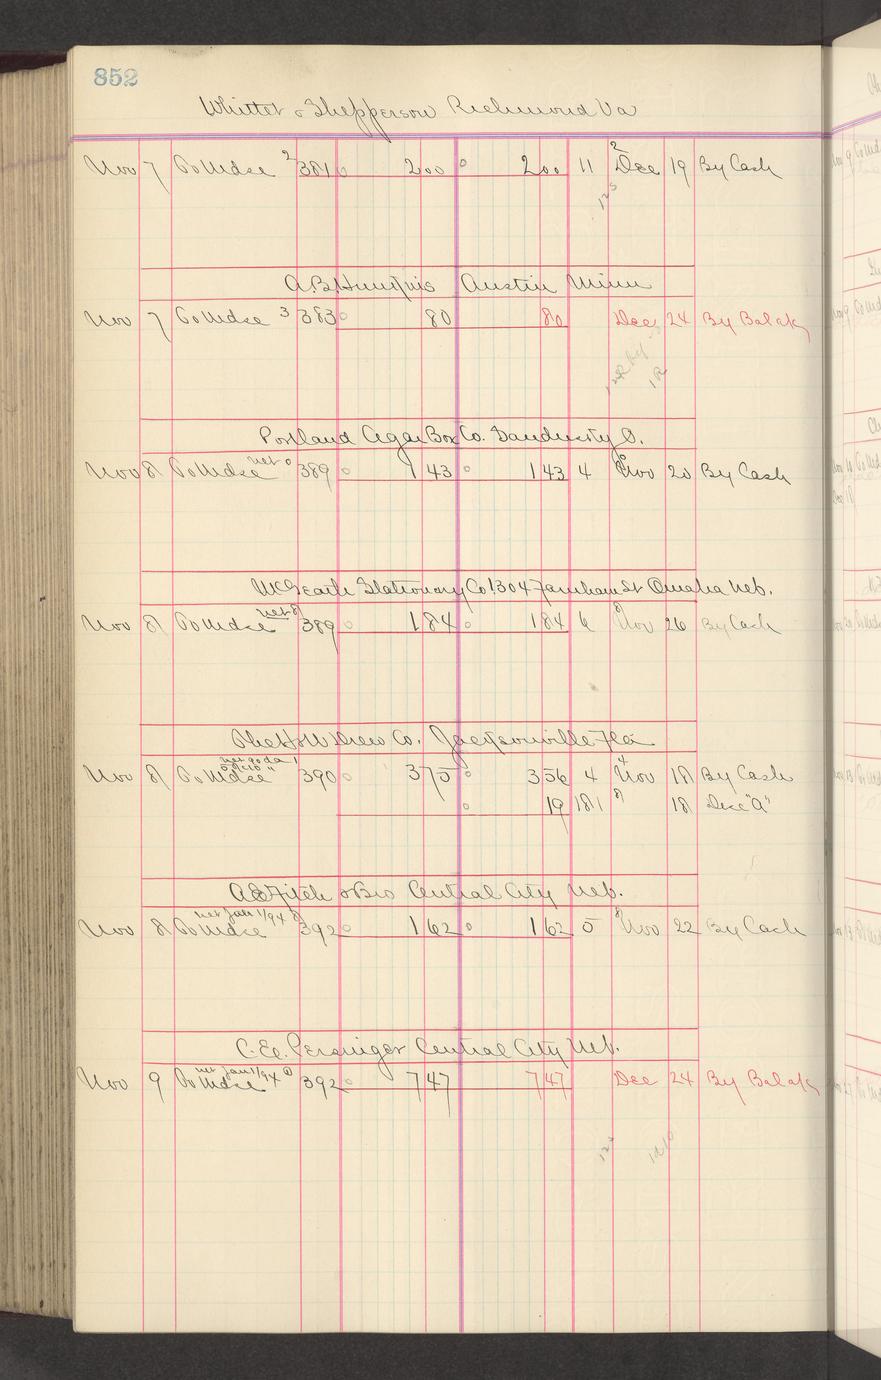 852
Whittet & Shepperson Richmond Va
Nov 7 To Mdse 2 381 2 00 2 00 11 2 Dec 19 By Cash
A.B. Hunkins Austin Minn
Nov 7 To Mdse 3 383 80 80 Dec 24 By Balak
Portland Cigar Box Co. Sandusky O.
Nov 8 To Mdse net 389 1 43 1 43 4 Nov 20 By Cash
McGeath Stationary Co. 1304 Farnham St Omaha Neb.
Nov 8 To Mdse net 8 389 1 84 1 84 6 8 Nov 26 By Cash
The H & W Drew Co. Jacksonville Fla
Nov 8 To Mdse 390 3 75 3 56 4 4 Nov 18 By Cash
19 181 8 18 Disc "a"
A.E. Fitch & Bro Central City Neb.
Nov 8 To Mdse net Jan 1/94 8 392 1 62 1 62 5 8 Nov 22 By Cash
C.E. Persinger Central City Neb.
Nov 9 To Mdse net Jan 1/94 392 7 47 7 47 Dec 24 By Balak